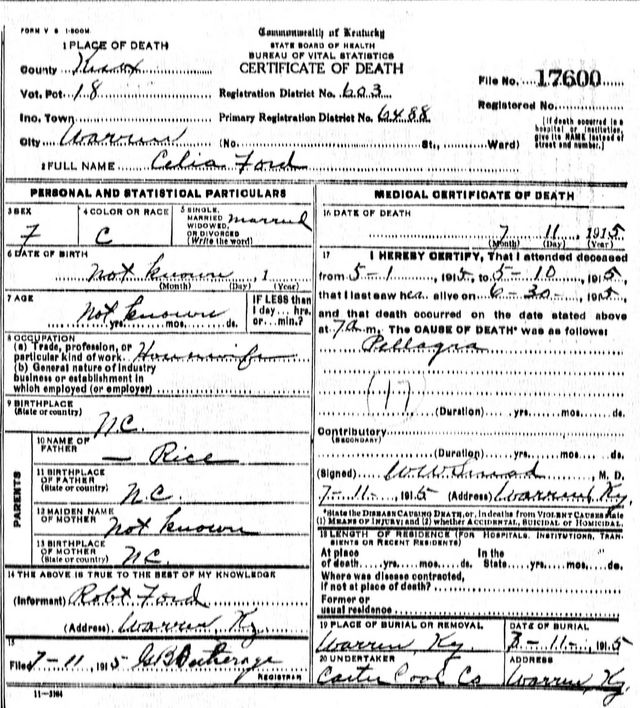 FORM V S 1-500M.
Commonwealth of Kentucky
STATE BOARD OF HEALTH
BUREAU OF VITAL STATISTICS
CERTIFICATE OF DEATH
1 PLACE OF DEATH
County Knox
Vot. Pct 18
Ino. Town
City Warren
File No. 17600
Registration District No. 603
Registered No.
Primary Registration District No. 6488
(No. St., Ward)
[If death occurred in a hospital or institution, give its NAME instead of street and number.]
2 FULL NAME Celia Ford
PERSONAL AND STATISTICAL PARTICULARS
3 SEX
F
4 COLOR OR RACE
C
5 SINGLE,
MARRIED
WIDOWED,
OR DIVORCED
(Write the word)
Married
6 DATE OF BIRTH
Not known, 1
(Month) (Day) (Year)
7 AGE
Not known
yrs. mos. ds.
IF LESS than
1 day... hrs.
or... min.?
8 OCCUPATION
(a) Trade, profession, or
particular kind of work Housewife
(b) General nature of industry
business or establishment in
which employed (or employer)
9 BIRTHPLACE
(State or country)
N.C.
PARENTS
10 NAME OF
FATHER
— Rice
11 BIRTHPLACE
OF FATHER
(State or country)
N.C.
12 MAIDEN NAME
OF MOTHER
Not known
13 BIRTHPLACE
OF MOTHER
(State or country)
NC
14 THE ABOVE IS TRUE TO THE BEST OF MY KNOWLEDGE
(Informant) Robt Ford
(Address) Warren, Ky.
15
Filed 7-11, 1915
REGISTRAR
11-3184
MEDICAL CERTIFICATE OF DEATH
16 DATE OF DEATH
7 11 1915
(Month) (Day) (Year)
17 I HEREBY CERTIFY, That I attended deceased
from 5-1, 1915, to 5-10, 1915,
that I last saw her alive on 6-30-, 1915,
and that death occurred on the date stated above
at 7a m. The CAUSE OF DEATH* was as follows:
Pellagra
(17)
(Duration) yrs. mos. ds.
Contributory
(SECONDARY)
(Duration) yrs. mos. ds.
(Signed) M. D.
7-11-, 1915 (Address) Warren, Ky.
*State the DISEASE CAUSING DEATH, or, in deaths from VIOLENT CAUSES state
(1) MEANS OF INJURY; and (2) whether ACCIDENTAL, SUICIDAL or HOMICIDAL.
18 LENGTH OF RESIDENCE (FOR HOSPITALS, INSTITUTIONS, TRANSIENTS OR RECENT RESIDENTS)
At place In the
of death yrs. mos. ds. State yrs. mos. ds.
Where was disease contracted,
if not at place of death?
Former or
usual residence
19 PLACE OF BURIAL OR REMOVAL
Warren, Ky.
DATE OF BURIAL
-11-, 1915
20 UNDERTAKER
Carter Coal Co
ADDRESS
Warren Ky.